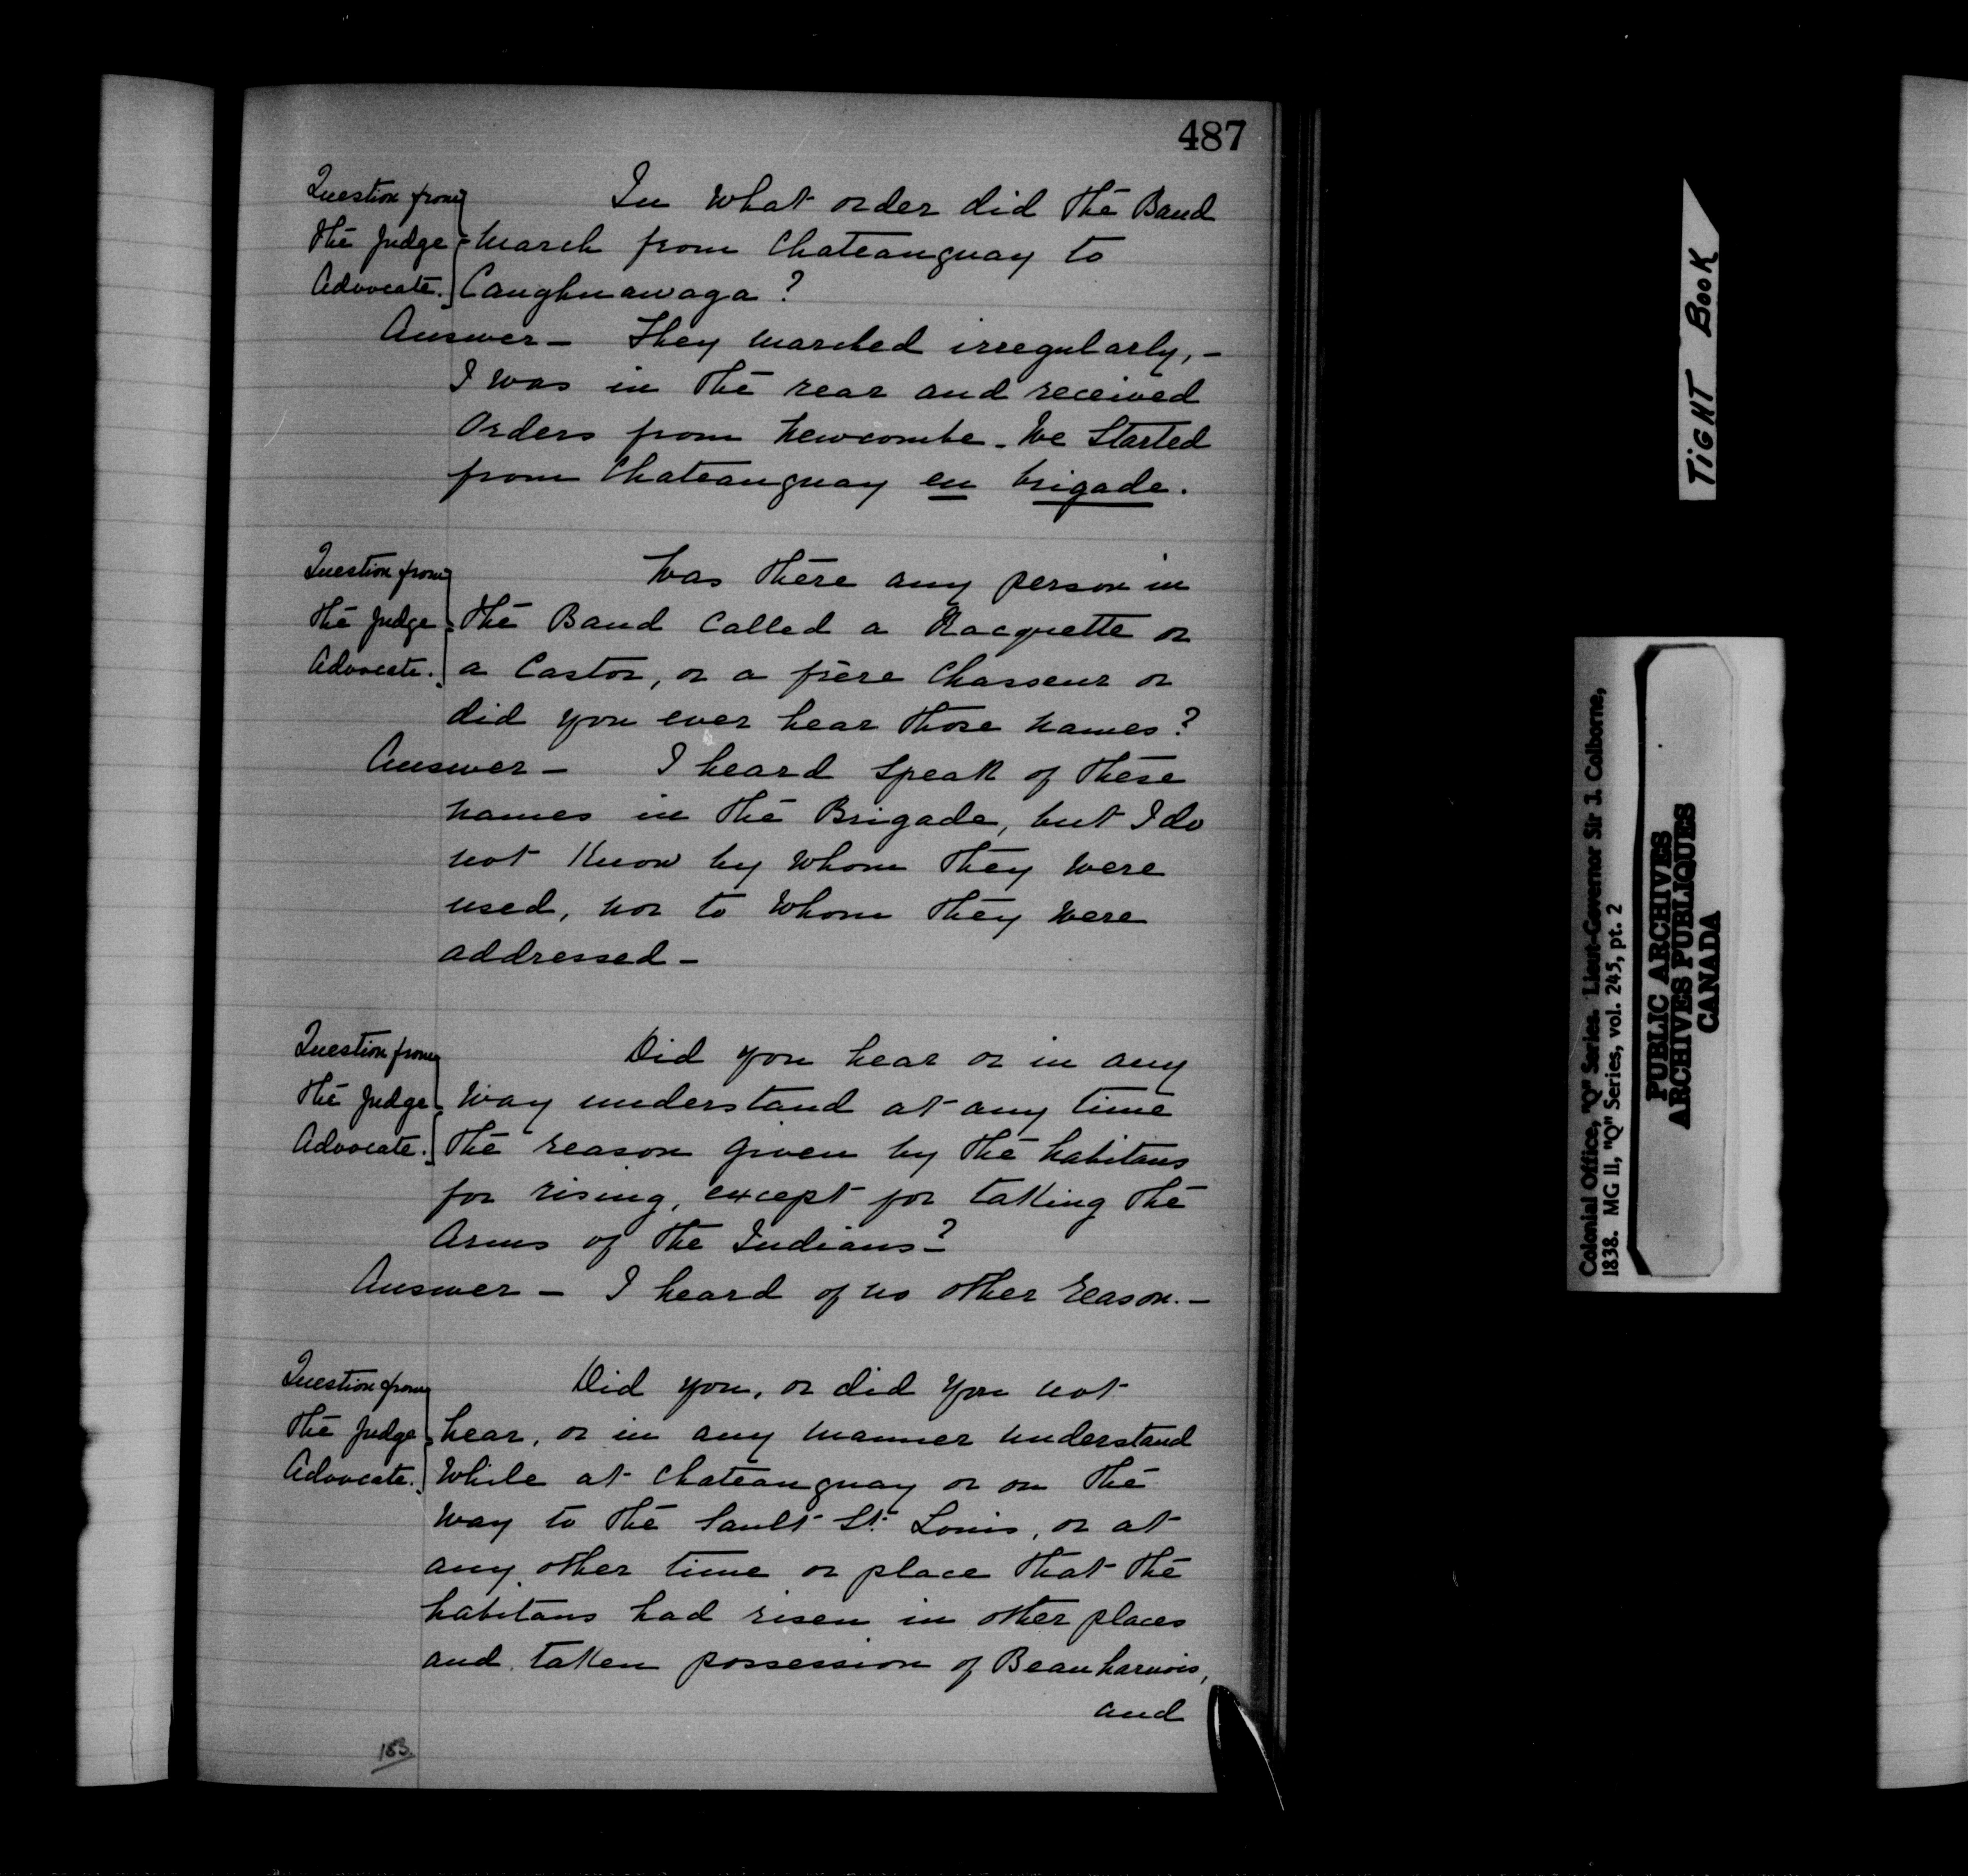 487
Question from } In what order did the Band
the Judge } march from Chateauguay to
Advocate. } Caughnawaga?
Answer – They marched irregularly, –
I was in the rear and received
Orders from Newcombe – We Started
from Chateauguay en brigade.
Question from } Was there any person in
the Judge } the Band called a Racquette or
Advocate. } a Castor, or a frère Chasseur or
did you ever hear those names?
Answer – I heard speak of these
names in the Brigade, but I do
not Know by whom they were
used, nor to whom they were
addressed –
Question from } Did you hear or in any
the Judge } way understand at any time
Advocate. } the reason given by the habitans
for rising, except for taking the
Arms of the Indians?
Answer – I heard of no other reason. –
Question from } Did you, or did you not
the Judge } hear, or in any manner understand
Advocate. } while at Chateauguay or on the
way to the Sault St. Louis, or at
any other time or place that the
habitans had risen in other places
and taken possession of Beauharnois,
and
153.
TIGHT BOOK
Colonial Office, "Q" Series. Lieut-Governor Sir J. Colborne,
1838. MG 11, "Q" Series, vol. 245, pt. 2
PUBLIC ARCHIVES
ARCHIVES PUBLIQUES
CANADA